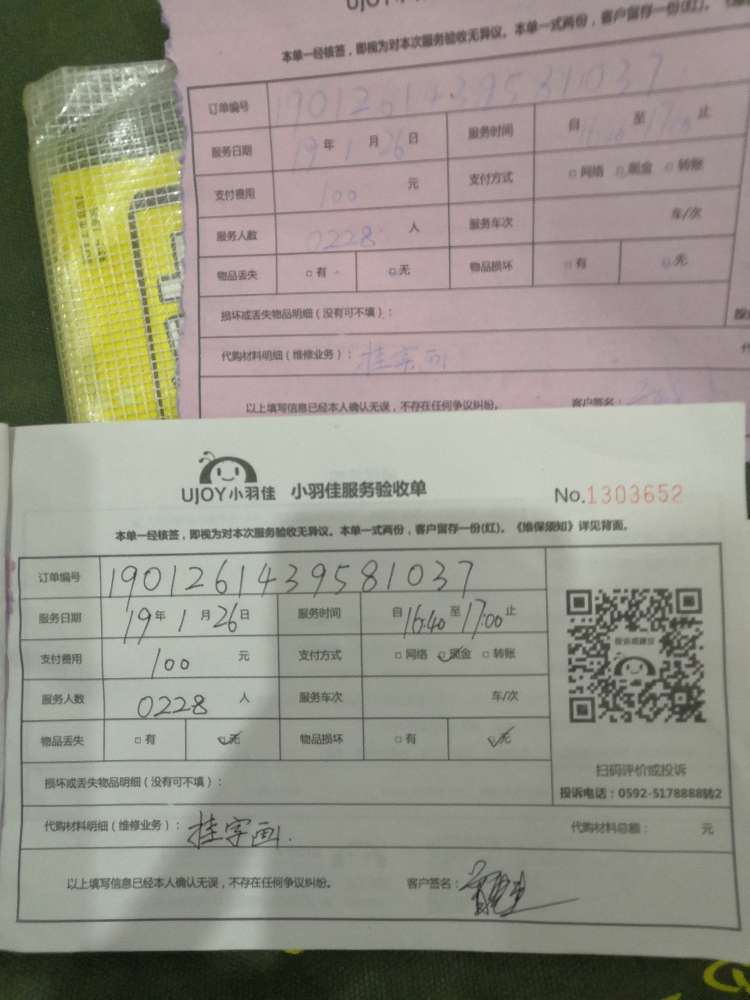 UJOY小羽
本单一经核签，即视为对本次服务验收无异议。本单一式两份，客户留存一份(红)。
订单编号 1901261439581037
服务日期 19年1月26日 服务时间 自16:40至17:00止
支付费用 100元 支付方式 □网络 □现金 □转账
服务人数 0228人 服务车次 车/次
物品丢失 □有 □无 物品损坏 □有 □无
损坏或丢失物品明细（没有可不填）：
代购材料明细（维修业务）：挂字画
以上填写信息已经本人确认无误，不存在任何争议纠纷。 客户签名：
UJOY小羽佳 小羽佳服务验收单 No.1303652
本单一经核签，即视为对本次服务验收无异议。本单一式两份，客户留存一份(红)。《维保须知》详见背面。
订单编号 1901261439581037
服务日期 19年1月26日 服务时间 自16:40至17:00止
支付费用 100元 支付方式 □网络 ☑现金 □转账
服务人数 0228人 服务车次 车/次
物品丢失 □有 ☑无 物品损坏 □有 ☑无
投诉或建议
扫码评价或投诉
投诉电话：0592-5178888转2
损坏或丢失物品明细（没有可不填）：
代购材料明细（维修业务）：挂字画. 代购材料总额： 元
以上填写信息已经本人确认无误，不存在任何争议纠纷。 客户签名：